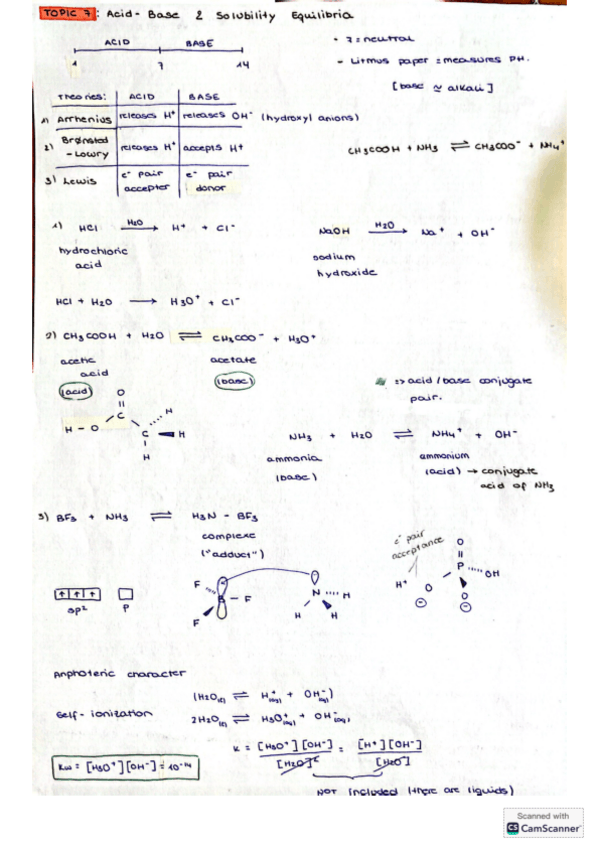 TOPIC 7: Acid-Base & Solubility Equilibria
ACID BASE
1 7 14
- 7 = neutral
- Litmus paper = measures PH.
[base ≃ alkali]
Theories: ACID BASE
1) Arrhenius releases H⁺ releases OH⁻ (hydroxyl anions)
2) Brønsted -Lowry releases H⁺ accepts H⁺
CH3COOH + NH3 ⇌ CH3COO⁻ + NH4⁺
3) Lewis e⁻ pair accepter e⁻ pair donor
1) HCl H2O→ H⁺ + Cl⁻
hydrochloric acid
NaOH H2O→ Na⁺ + OH⁻
sodium hydroxide
HCl + H2O → H3O⁺ + Cl⁻
2) CH3COOH + H2O ⇌ CH3COO⁻ + H3O⁺
acetic acid acetate
(acid) (base)
=> acid/base conjugate pair.
O
C
H
H - O
C H
H
NH3 + H2O ⇌ NH4⁺ + OH⁻
ammonia ammonium
(base) (acid) → conjugate acid of NH3
3) BF3 + NH3 ⇌ H3N - BF3
complexe
("adduct")
e⁻ pair acceptance
O
P
OH
H⁺ O
⊖ O
⊖
sp² p
F
B - F
F
N H
H H
Anphoteric character
(H2O(l) ⇌ H⁺(aq) + OH⁻(aq))
Self-ionization 2H2O(l) ⇌ H3O⁺(aq) + OH⁻(aq)
K = [H3O⁺][OH⁻] / [H2O]² = [H⁺][OH⁻] / [H2O]
Kw = [H3O⁺][OH⁻] = 10⁻¹⁴
NOT included (there are liquids)
Scanned with
CS CamScanner